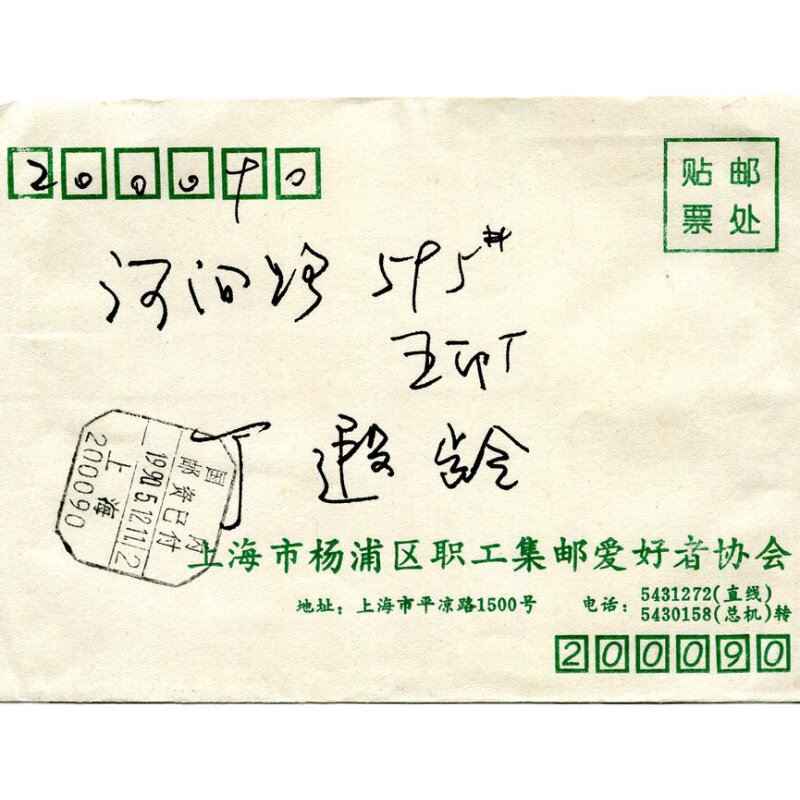 200090
贴邮
票处
河间路 595#
五印厂
丁遐龄
国内
邮资已付
1990.5.12.11/2
上海
200090
上海市杨浦区职工集邮爱好者协会
地址：上海市平凉路1500号
电话：5431272(直线)
5430158(总机)转
200090